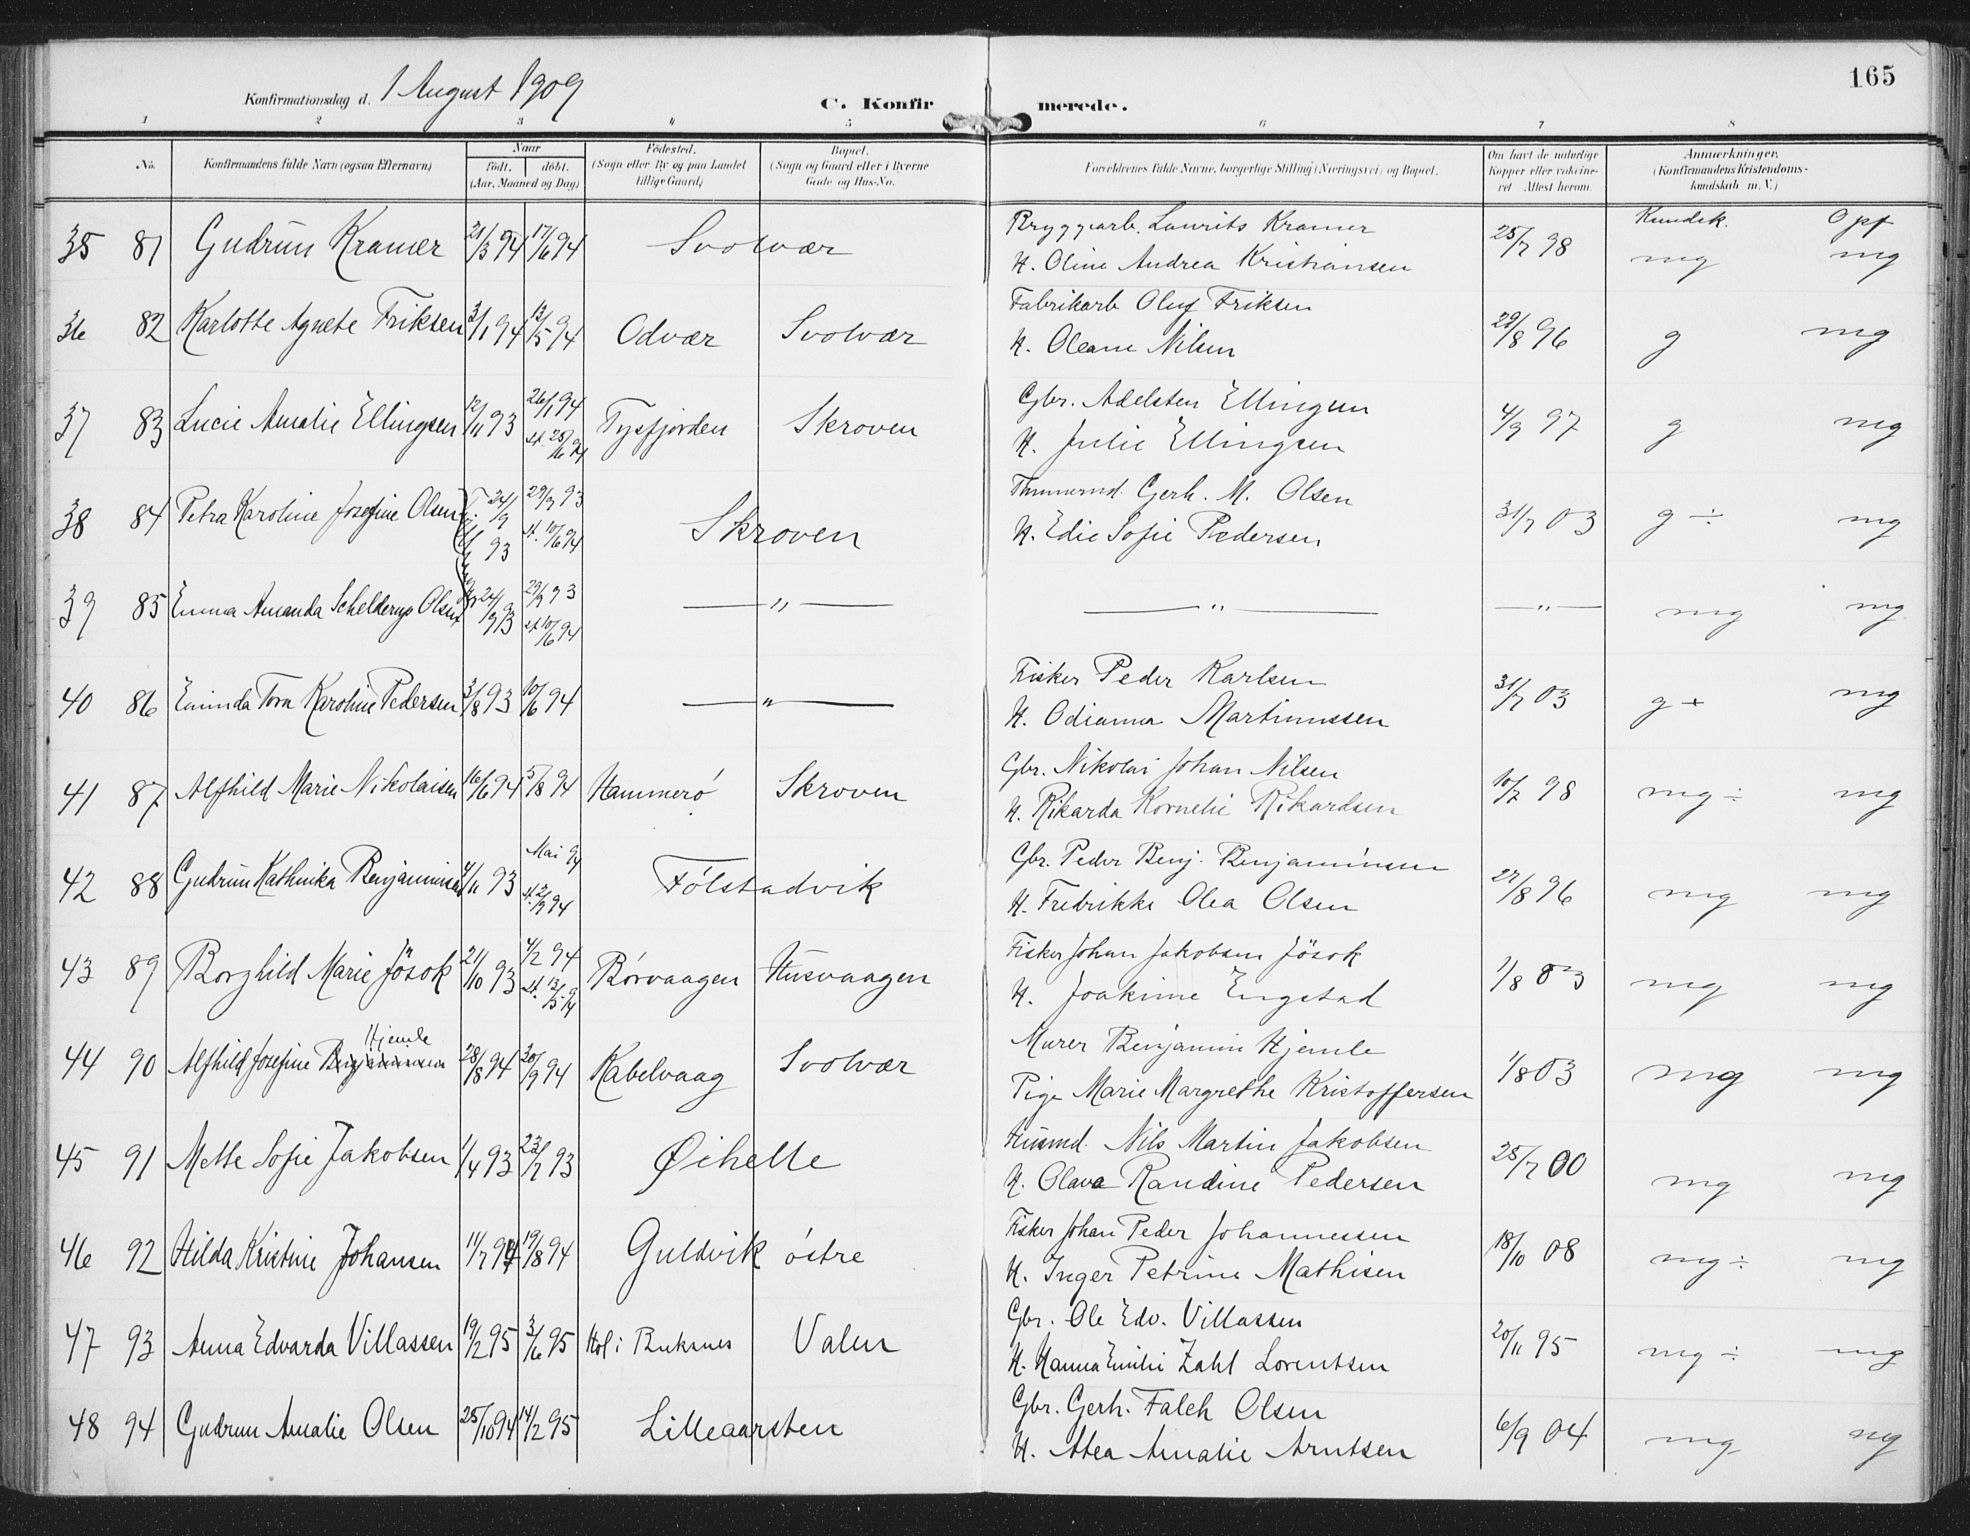 165
Konfirmationsdag d. 1 August 1909
C. Konfirmerede.
1 2 3 4 5 6 7 8
No. Konfirmandens fulde Navn (ogsaa Efternavn) Naar født. døbt. (Aar, Maaned og Dag) Fødested. (Sogn eller By og paa Landet tillige Gaard) Bopæl. (Sogn og Gaard eller i Byerne Gade og Hus-No. Forældrenes fulde Navne, borgerlige Stilling (Næringsvei) og Bopæl. Om havt de naturlige Kopper eller vakcineret. Attest herom. Anmærkninger. (Konfirmandens Kristendomskundskab m. V.)
Kundsk. Opf
35 81 Gudrun Kramer 21/3 94 17/6 94 Svolvær Bryggarb. Laurits Kramer 25/7 98 mg mg
H. Oline Andrea Kristiansen
36 82 Karlotte Agnete Friksen 3/1 94 13/5 94 Odvær Svolvær Fabrikarb Oluf Friksen 29/8 96 g mg
H. Oleane Nilsen
37 83 Lucie Amalie Ellingsen 12/11 93 26/1 94 st. 25/6 94 Tysfjorden Skroven Gbr. Adelsten Ellingsen 4/9 97 g mg
H. Julie Ellingsen
38 84 Petra Karoline Josefine Olsen 24/9 93 29/9 93 st. 10/6 94 Skroven Tømmermd. Gerh. M. Olsen 31/7 03 g ÷ mg
H. Edie Sofie Pedersen
39 85 Emma Amanda Schelderup Olsen 24/9 93 29/9 93 st 10/6 94 — " — — " — — " — mg mg
40 86 Eminda Tora Karoline Pedersen 3/8 93 10/6 94 — " — Fisker Peder Karlsen 31/7 03 g + mg
H. Odianna Martinussen
41 87 Alfhild Marie Nikolaisen 16/6 94 5/8 94 Hammerø Skroven Gbr. Nikolai Johan Nilsen 10/7 98 mg ÷ mg
H. Rikarda Kornelie Rikardsen
42 88 Gudrun Kathinka Benjaminsen 4/11 93 Mai 94 st. 2/9 94 Følstadvik Gbr. Peder Benj. Benjaminsen 27/8 96 mg mg
H. Fredrikke Olea Olsen
43 89 Borghild Marie Jösok 21/10 93 4/2 94 st. 13/5 94 Børvaagen Husvaagen Fisker Johan Jakobsen Jösok 1/8 03 mg mg
H. Joakime Engstad
44 90 Alfhild Josefine Benjaminsen Hjemle 28/8 94 30/9 94 Kabelvaag Svolvær Murer Benjamin Hjemle 1/8 03 mg mg
Pige Marie Margrethe Kristoffersen
45 91 Mette Sofie Jakobsen 1/4 93 23/7 93 Øihelle Husmd. Nils Martin Jakobsen 25/7 00 mg mg
H. Olava Randine Pedersen
46 92 Hilda Kristine Johansen 11/7 94 19/8 94 Guldvik østre Fisker Johan Peder Johannessen 18/10 08 mg ÷ mg
H. Inger Petrine Mathisen
47 93 Anna Edvarda Villassen 19/2 95 3/6 95 Hol i Buksnes Valen Gbr. Ole Edv. Villassen 20/11 95 mg ÷ mg
H. Hanna Emilie Zahl Lorentsen
48 94 Gudrun Amalie Olsen 25/10 94 14/2 95 Lilleaarsten Gbr. Gerh. Falch Olsen 6/9 04 mg ng
H. Atea Amalie Arntsen